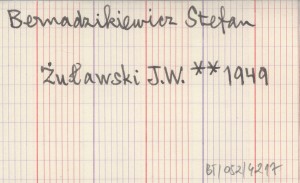 Bernadzikiewicz Stefan
Żuławski J.W. ** 1949
BT/052/4217